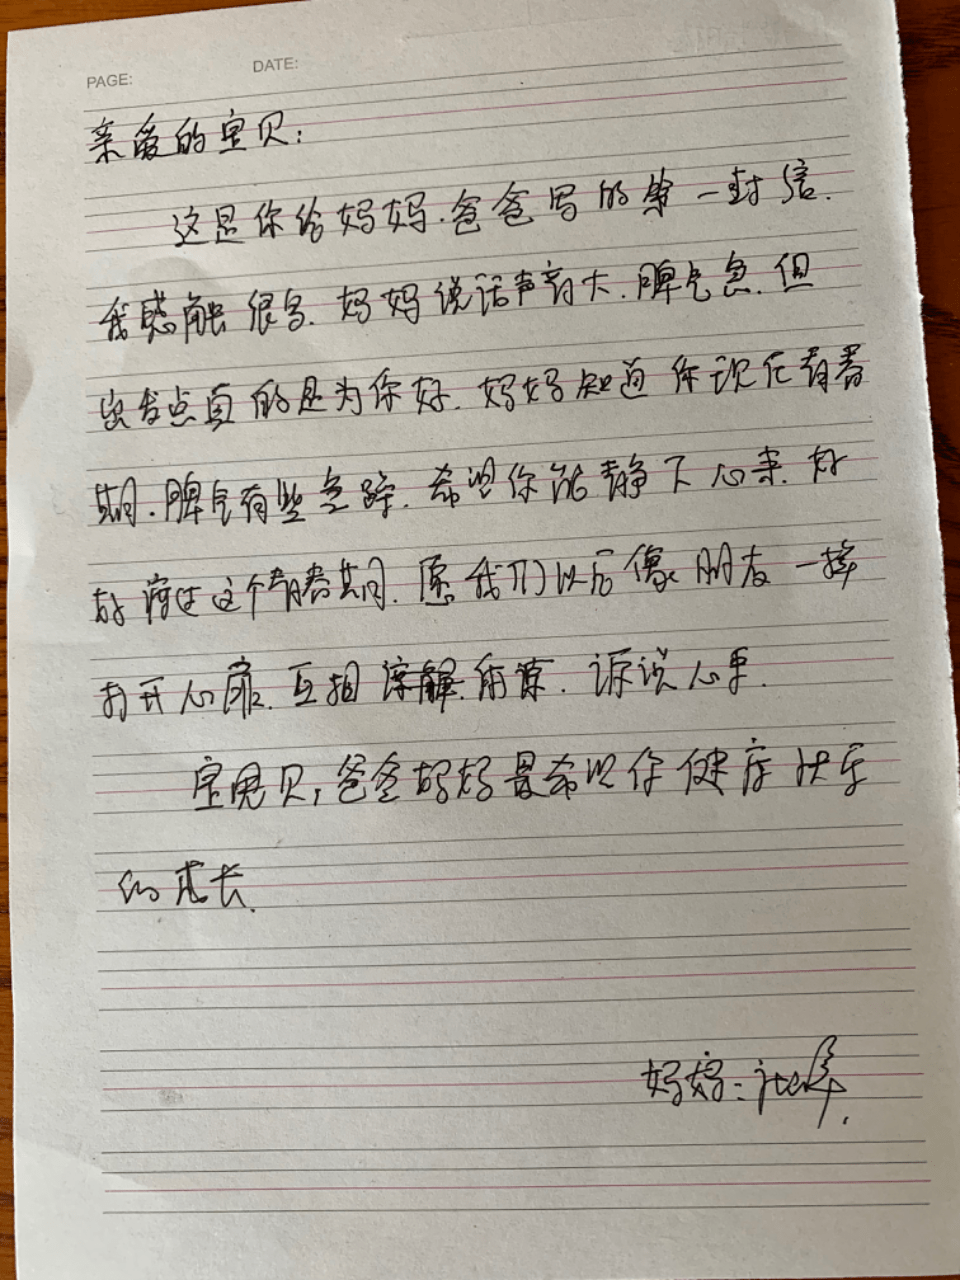 PAGE: DATE:
亲爱的宝贝:
这是你给妈妈.爸爸写的第一封信.
我感触很多.妈妈说话声音大.脾气急.但
出发点真的是为你好.妈妈知道你现在青春
期.脾气有些急躁.希望你能静下心来.好
好度过这个青春期.愿我们以后像朋友一样
打开心扉.互相谅解.倾诉说心事.
宝贝,爸爸妈妈最希望你健康快乐
的成长.
妈妈: